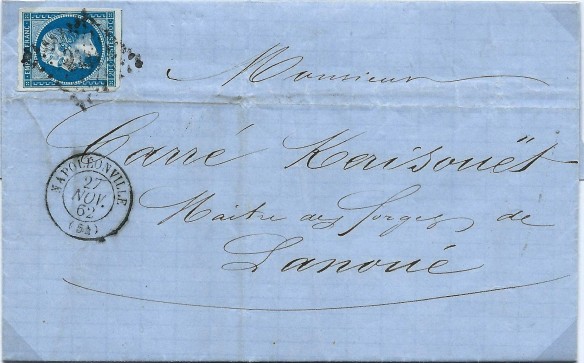 EMPIRE FRANC.
Monsieur
Carré Kerisouët
Maître des Forges de
Lanoué
NAPOLÉONVILLE
27
NOV.
62
(54)